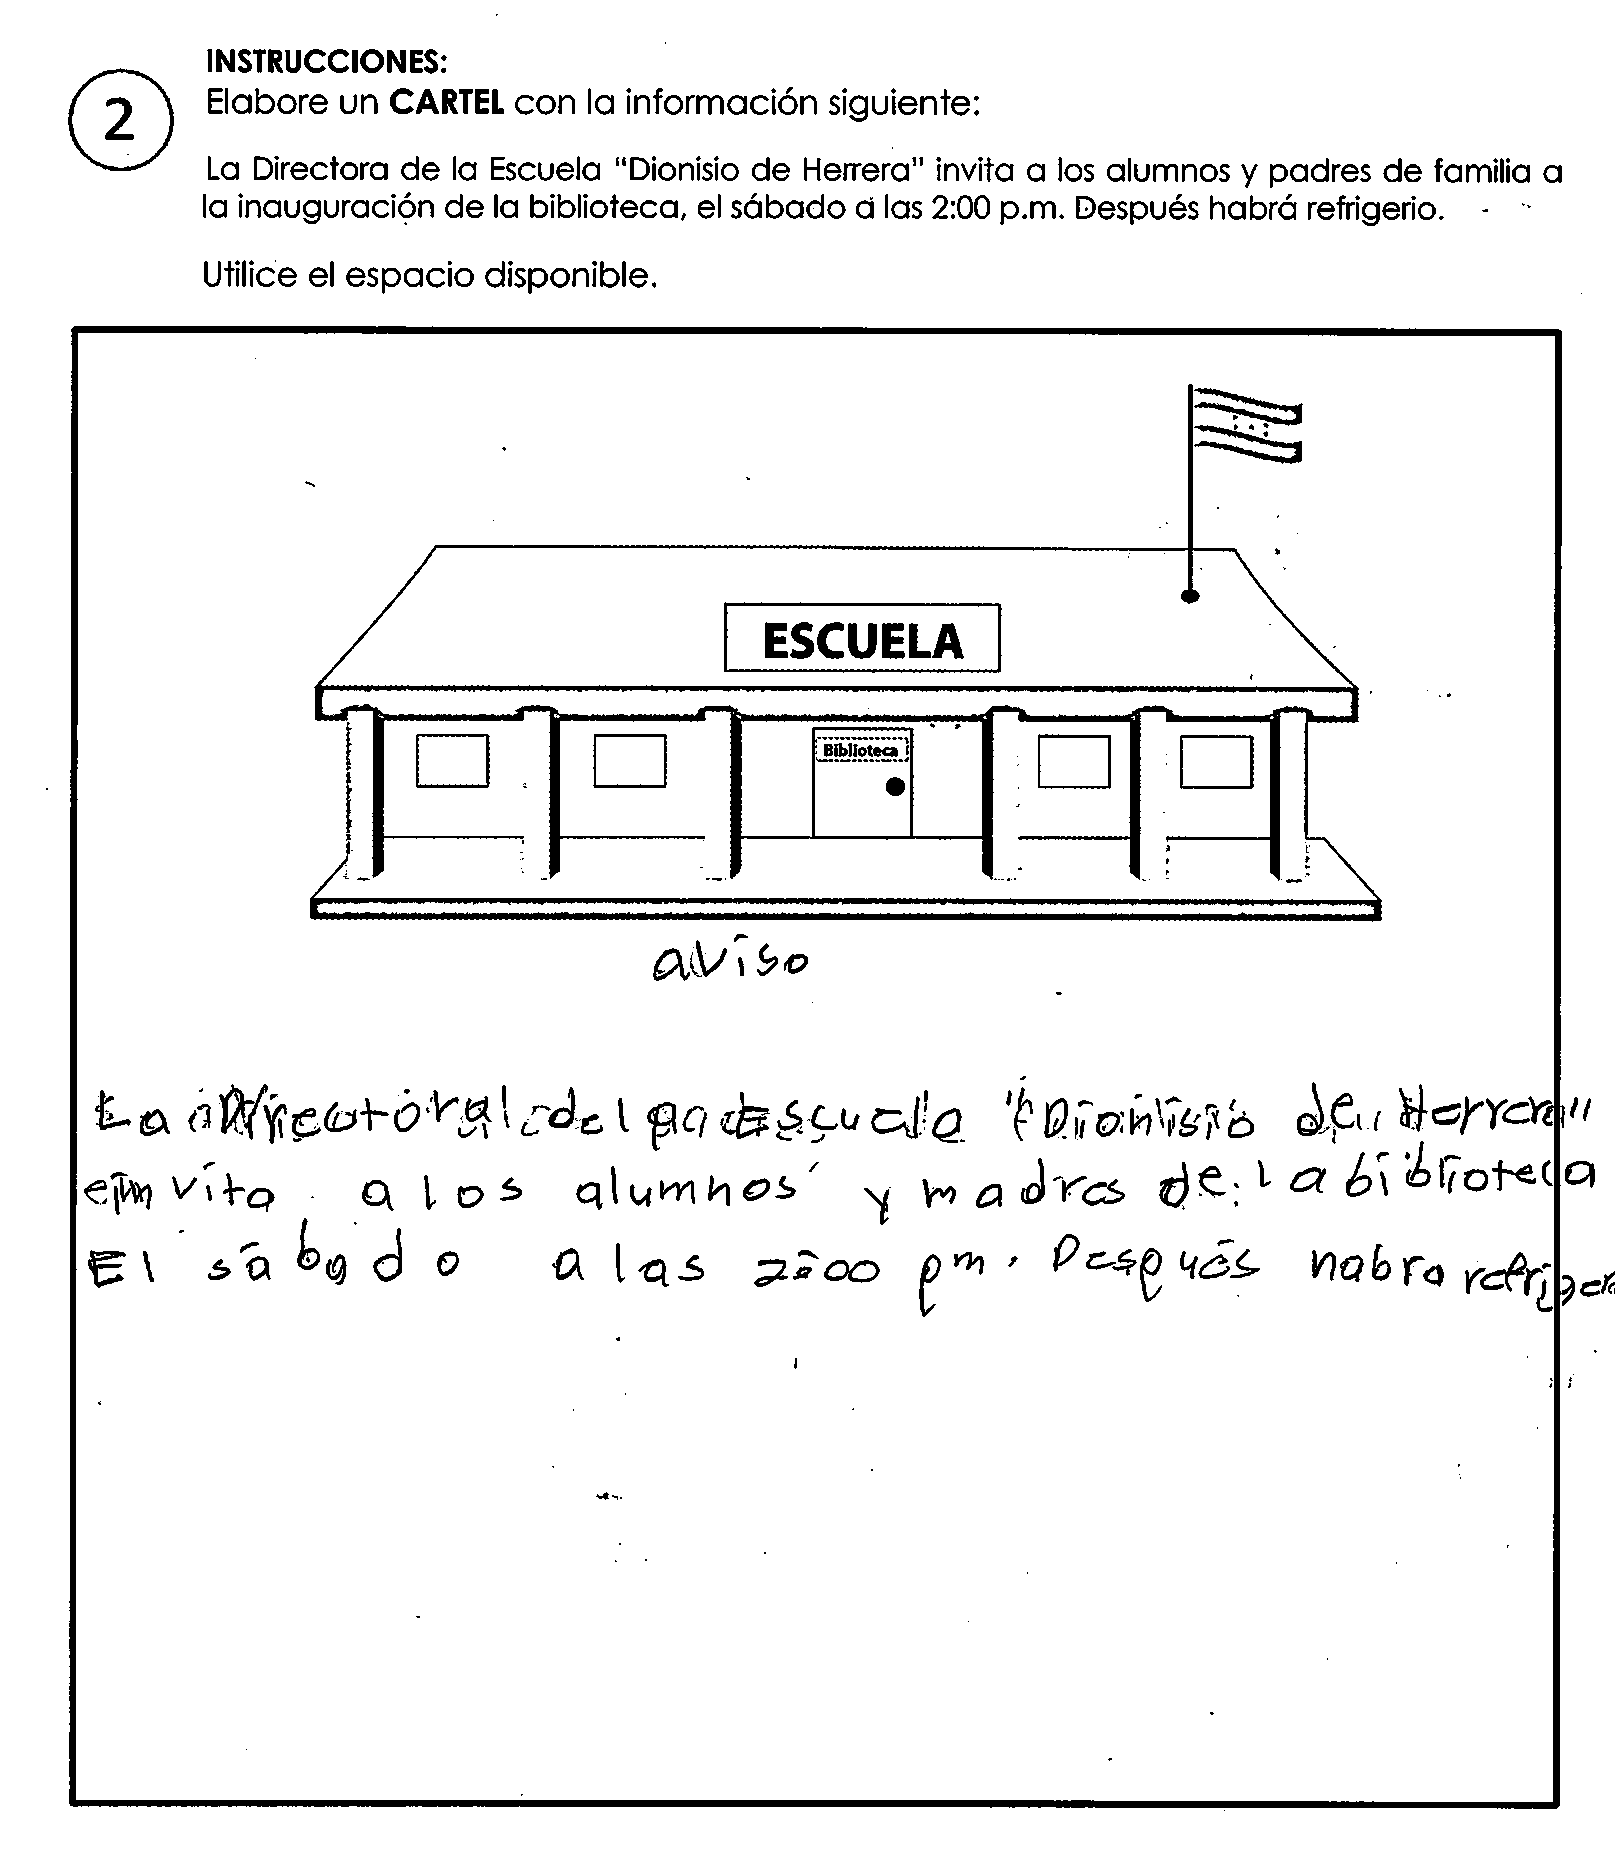 INSTRUCCIONES:
2
Elabore un CARTEL con la información siguiente:
La Directora de la Escuela "Dionisio de Herrera" invita a los alumnos y padres de familia a
la inauguración de la biblioteca, el sábado a las 2:00 p.m. Después habrá refrigerio.
Utilice el espacio disponible.
ESCUELA
Biblioteca
aviso
La escuela "Dionisio de Herrera"
a los alumnos y madres de la biblioteca
El sábado a las 2:00 pm. Después habra